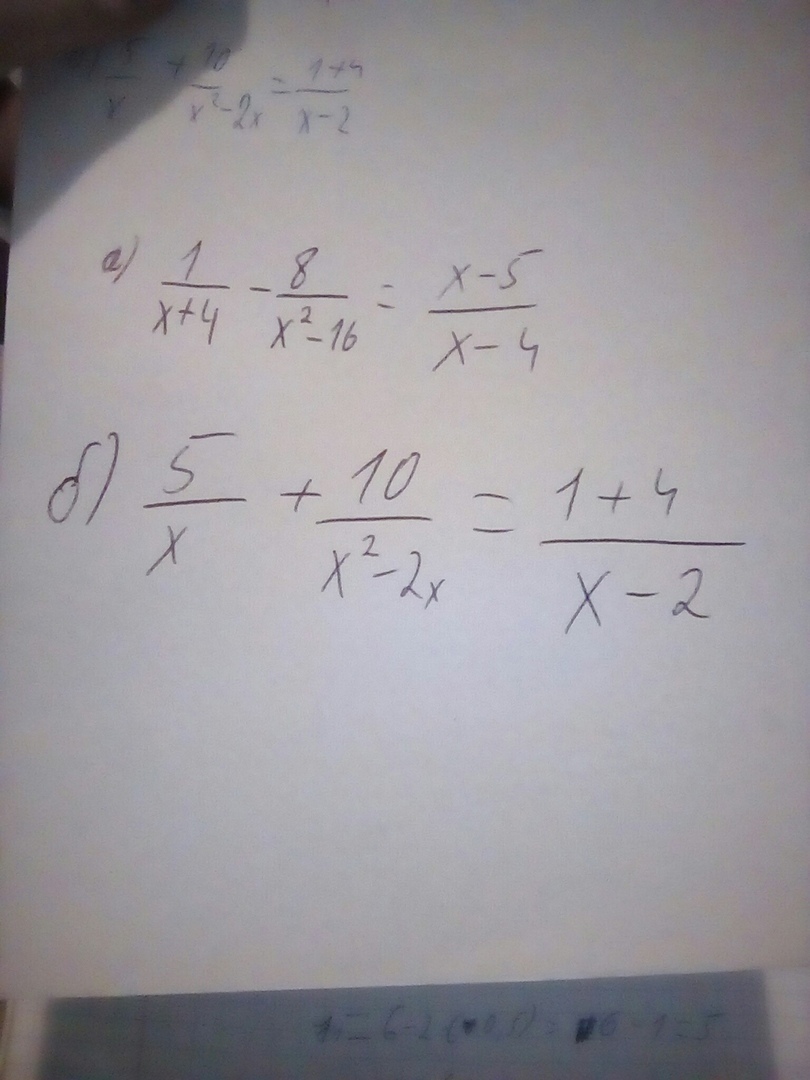 5/x + 10/(x²-2x) = (1+4)/(x-2)
а) 1/(x+4) - 8/(x²-16) = (x-5)/(x-4)
б) 5/x + 10/(x²-2x) = (1+4)/(x-2)